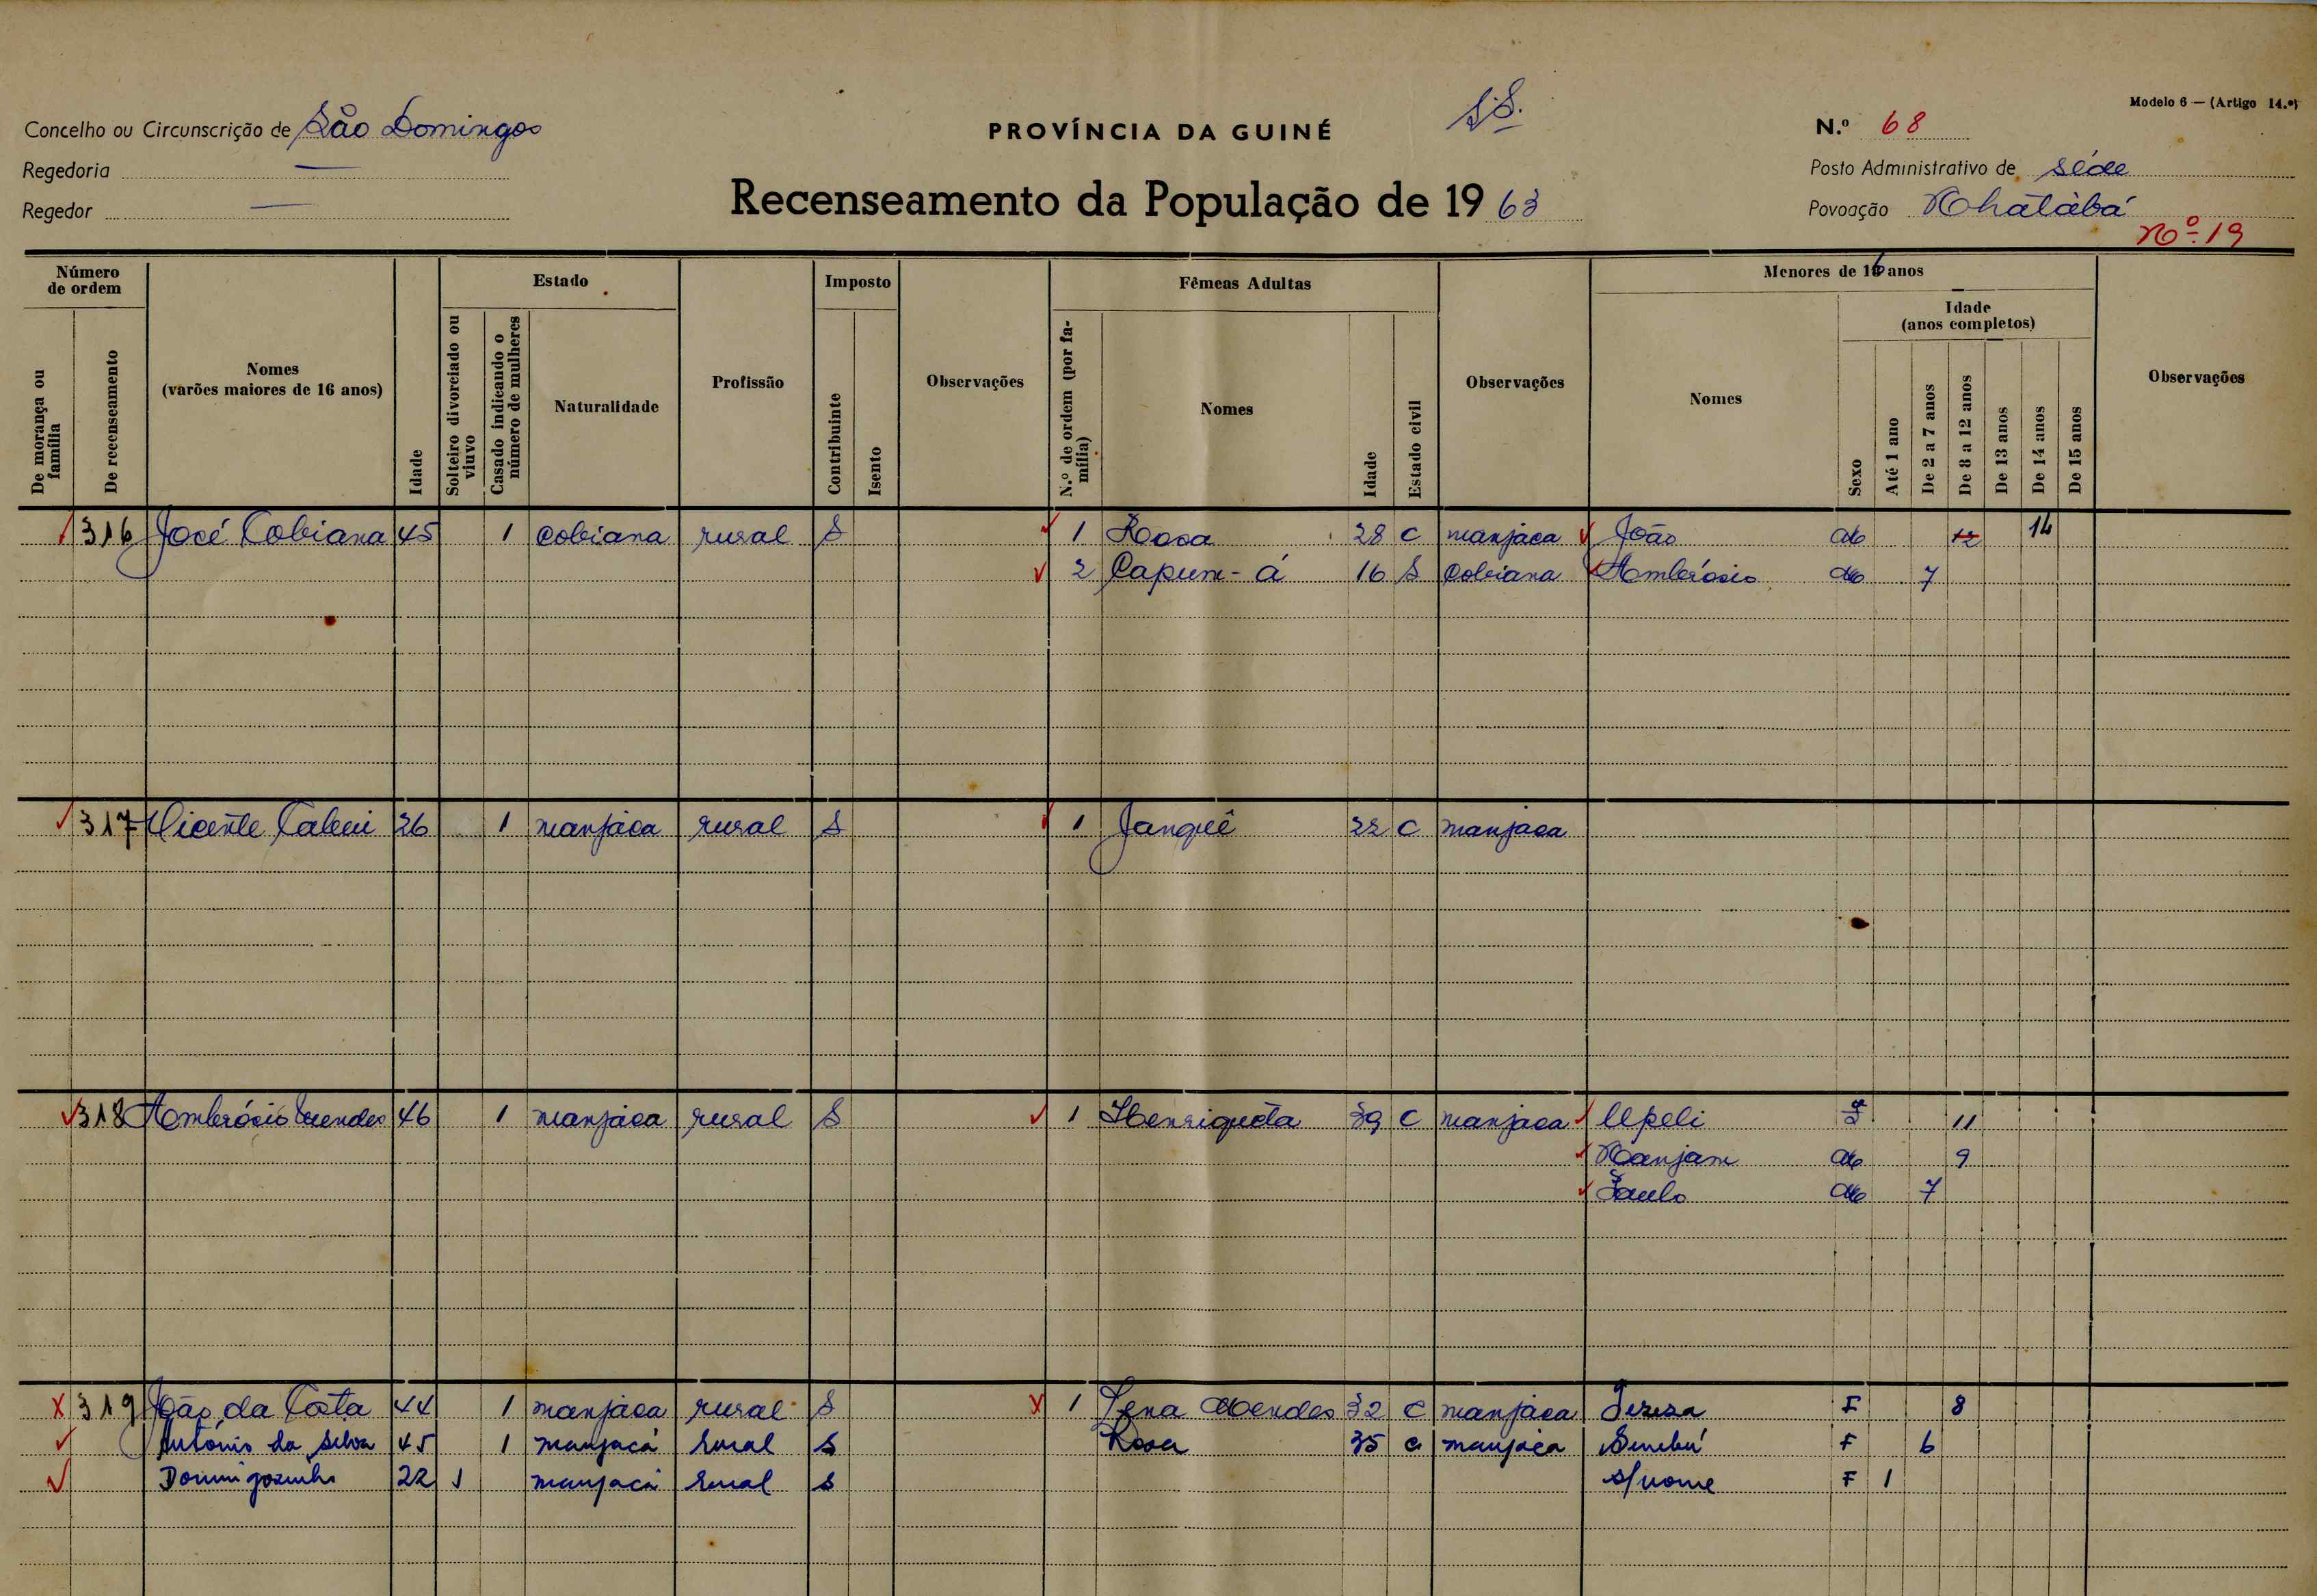 Modelo 6 — (Artigo 14.º)
Concelho ou Circunscrição de São Domingos
PROVÍNCIA DA GUINÉ
N.º 68
Regedoria —
Posto Administrativo de Séde
Regedor —
Recenseamento da População de 1963
Povoação
Nº 19
Número de ordem
Estado
Imposto
Fêmeas Adultas
Menores de 16 anos
Idade (anos completos)
De morança ou família
De recenseamento
Nomes (varões maiores de 16 anos)
Idade
Solteiro divorciado ou viuvo
Casado indicando o número de mulheres
Naturalidade
Profissão
Contribuinte
Isento
Observações
N.º de ordem (por família)
Nomes
Idade
Estado civil
Observações
Nomes
Sexo
Até 1 ano
De 2 a 7 anos
De 8 a 12 anos
De 13 anos
De 14 anos
De 15 anos
Observações
316 José Cobiana 45 1 cobiana rural S 1 Rosa 28 C manjaca João M 12 14
2 Capum-á 16 S Cobiana Ambrósio M 7
317 Vicente 26 1 manjaca rural S 1 Janqué 22 C manjaca
318 Ambrósio Mendes 46 1 manjaca rural S 1 Henriqueta 39 C manjaca Upeli F 11
Nanjam M 9
Paulo M 7
319 João da Costa 44 1 manjaca rural S 1 Mendes 32 C manjaca Tereza F 8
António da Silva 45 1 manjaca rural S Rosa 35 C manjaca F 6
Domingozinho 22 1 manjaca rural S s/nome F 1